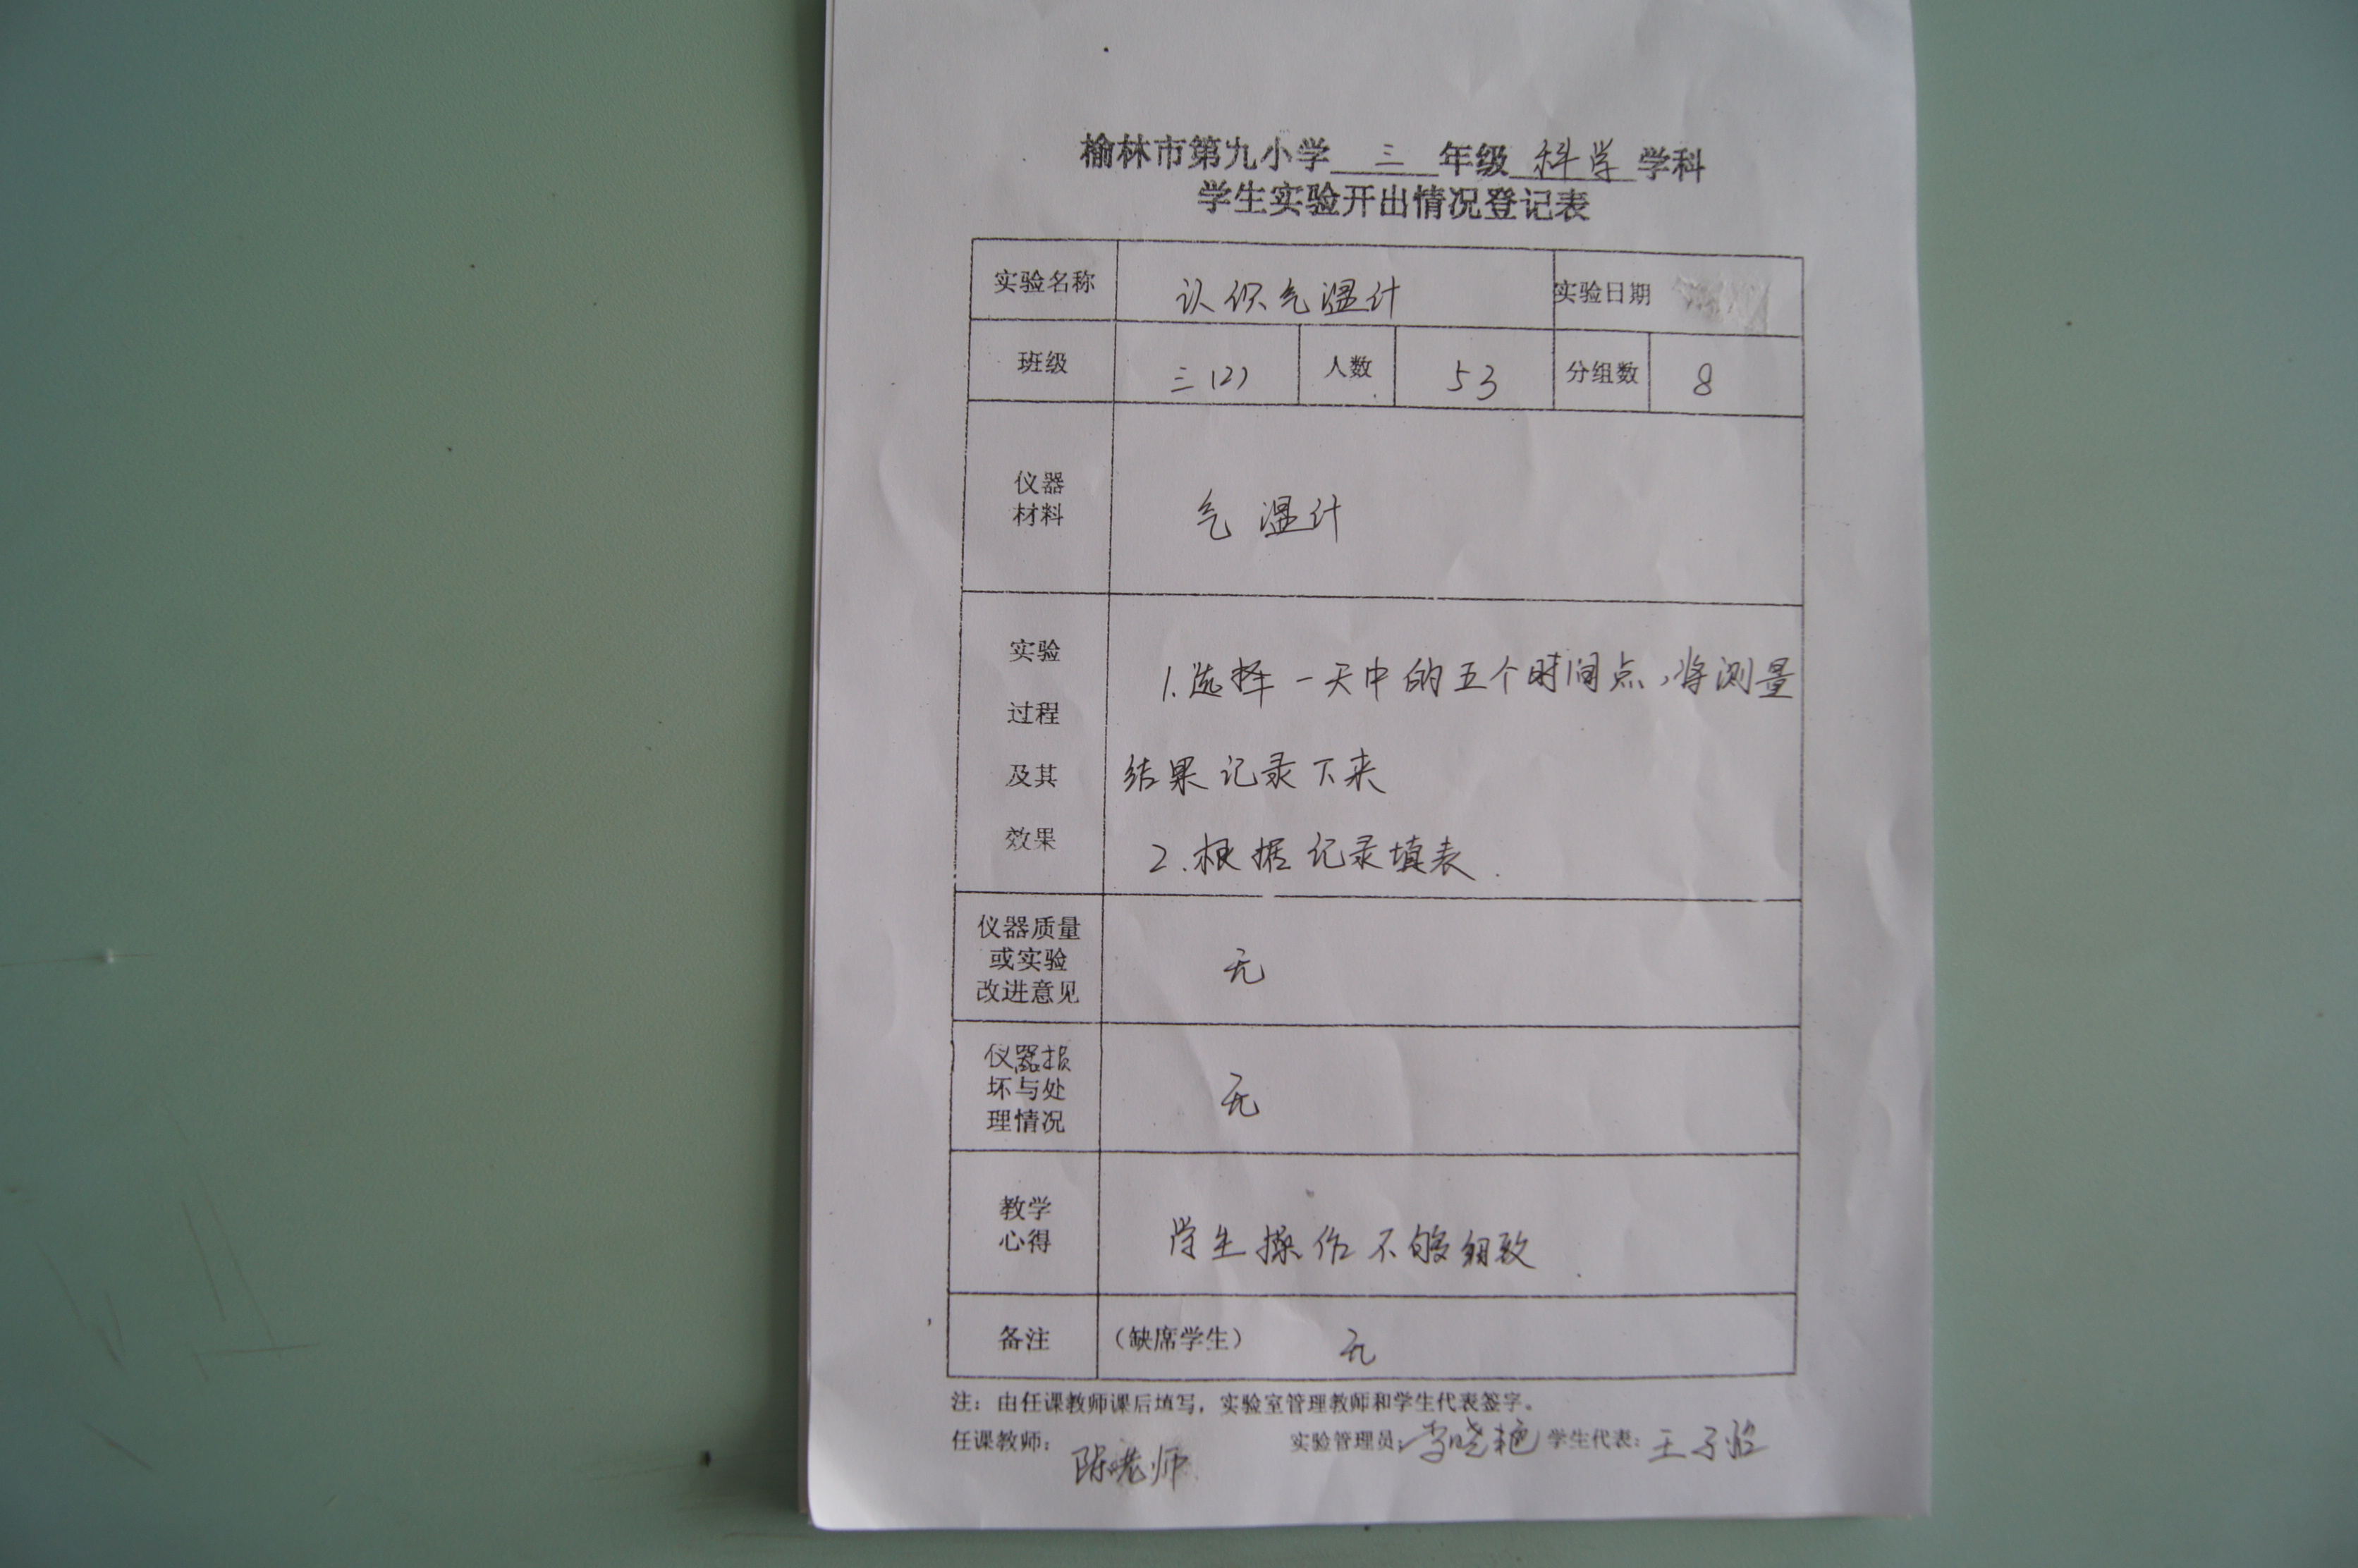 榆林市第九小学 三 年级 科学 学科
学生实验开出情况登记表
实验名称 认识气温计 实验日期
班级 三(2) 人数 53 分组数 8
仪器
材料
气温计
实验
过程
及其
效果
1.选择一天中的五个时间点,将测量
结果记录下来
2.根据记录填表.
仪器质量
或实验
改进意见
无
仪器损
坏与处
理情况
无
教学
心得
学生操作不够细致.
备注 (缺席学生) 无
注:由任课教师课后填写,实验室管理教师和学生代表签字。
任课教师: 陈老师 实验管理员: 李晓艳 学生代表: 王子